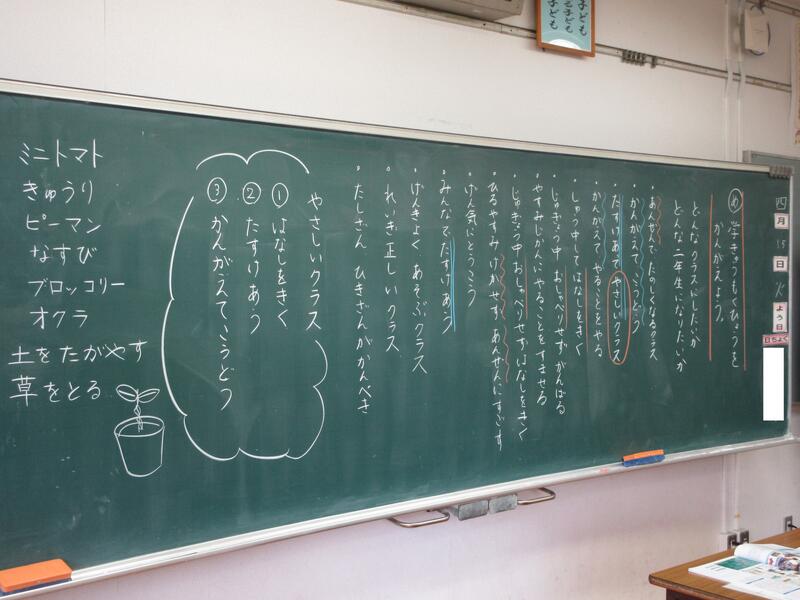 四月15日火よう日
日ちょく
㋱学きゅうもくひょうを
かんがえよう。
どんなクラスにしたいか
どんな二年生になりたいか
・あんぜんでたのしくなるクラス
・かんがえてこうどう
・たすけあて やさしいクラス
・かんがえてやることをやる
・しゅう中してはなしをきく
・じゅぎょう中おしゃべりせずがんばる
・やすみじかんにやることをすませる
・じゅぎょう中おしゃべりせずはなしをきく
・ひるやすみけがせずあんぜんにすごす
・げん気にとうこう
・みんなでたすけあう
・げんきよくあそぶクラス
・れいぎ正しいクラス
・たしざんひきざんがかんぺき
やさしいクラス
①はなしをきく
②たすけあう
③かんがえてこうどう
ミニトマト
きゅうり
ピーマン
なすび
ブロッコリー
オクラ
土をたがやす
草をとる